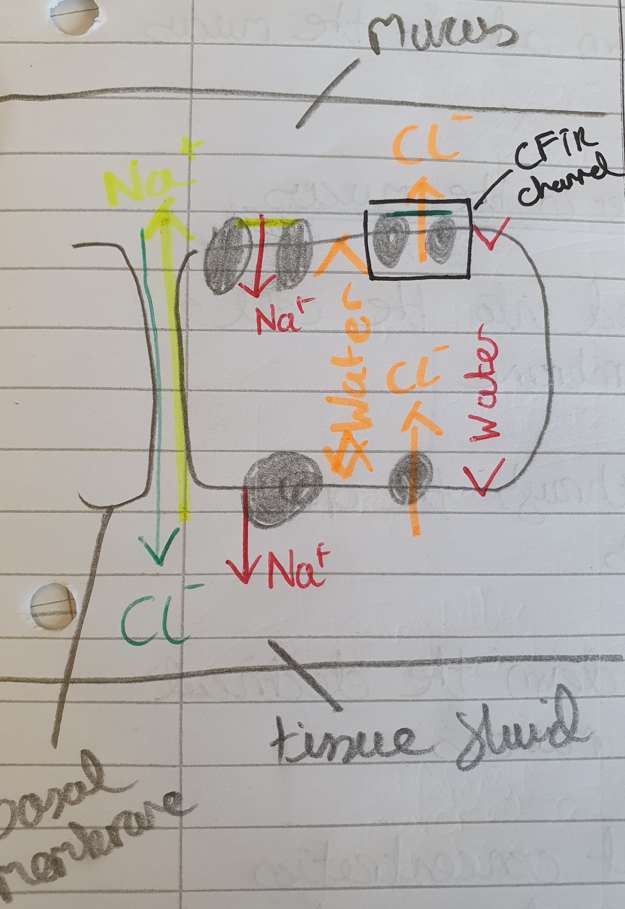 Mucus
Cl⁻
CFTR
channel
Na⁺
Na⁺
Water
Cl⁻
Water
Na⁺
Cl⁻
tissue fluid
basal
membrane